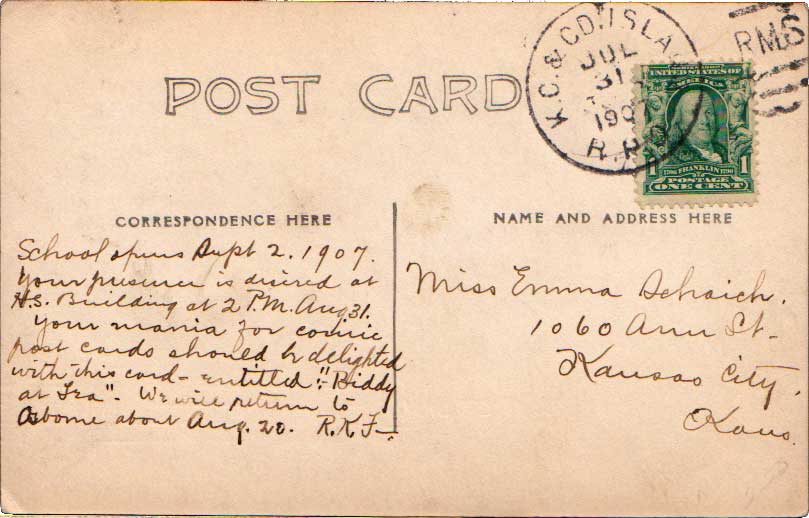 POST CARD
K.C. & CD. ISLA
JUL
31
1907
R.P.O.
RMS
UNITED STATES OF
AMERICA
1 1
1706 FRANKLIN 1790
POSTAGE
ONE CENT
CORRESPONDENCE HERE
School opens Sept 2. 1907.
Your presence is desired at
H.S. Building at 2 P.M. Aug 31.
Your mania for comic
post cards should be delighted
with this card - entitled "Biddy
at Tea". We will return to
about Aug. 20. R.K.F.
NAME AND ADDRESS HERE
Miss Emma Schaich.
1060 Ann St.
Kansas City,
Kans.